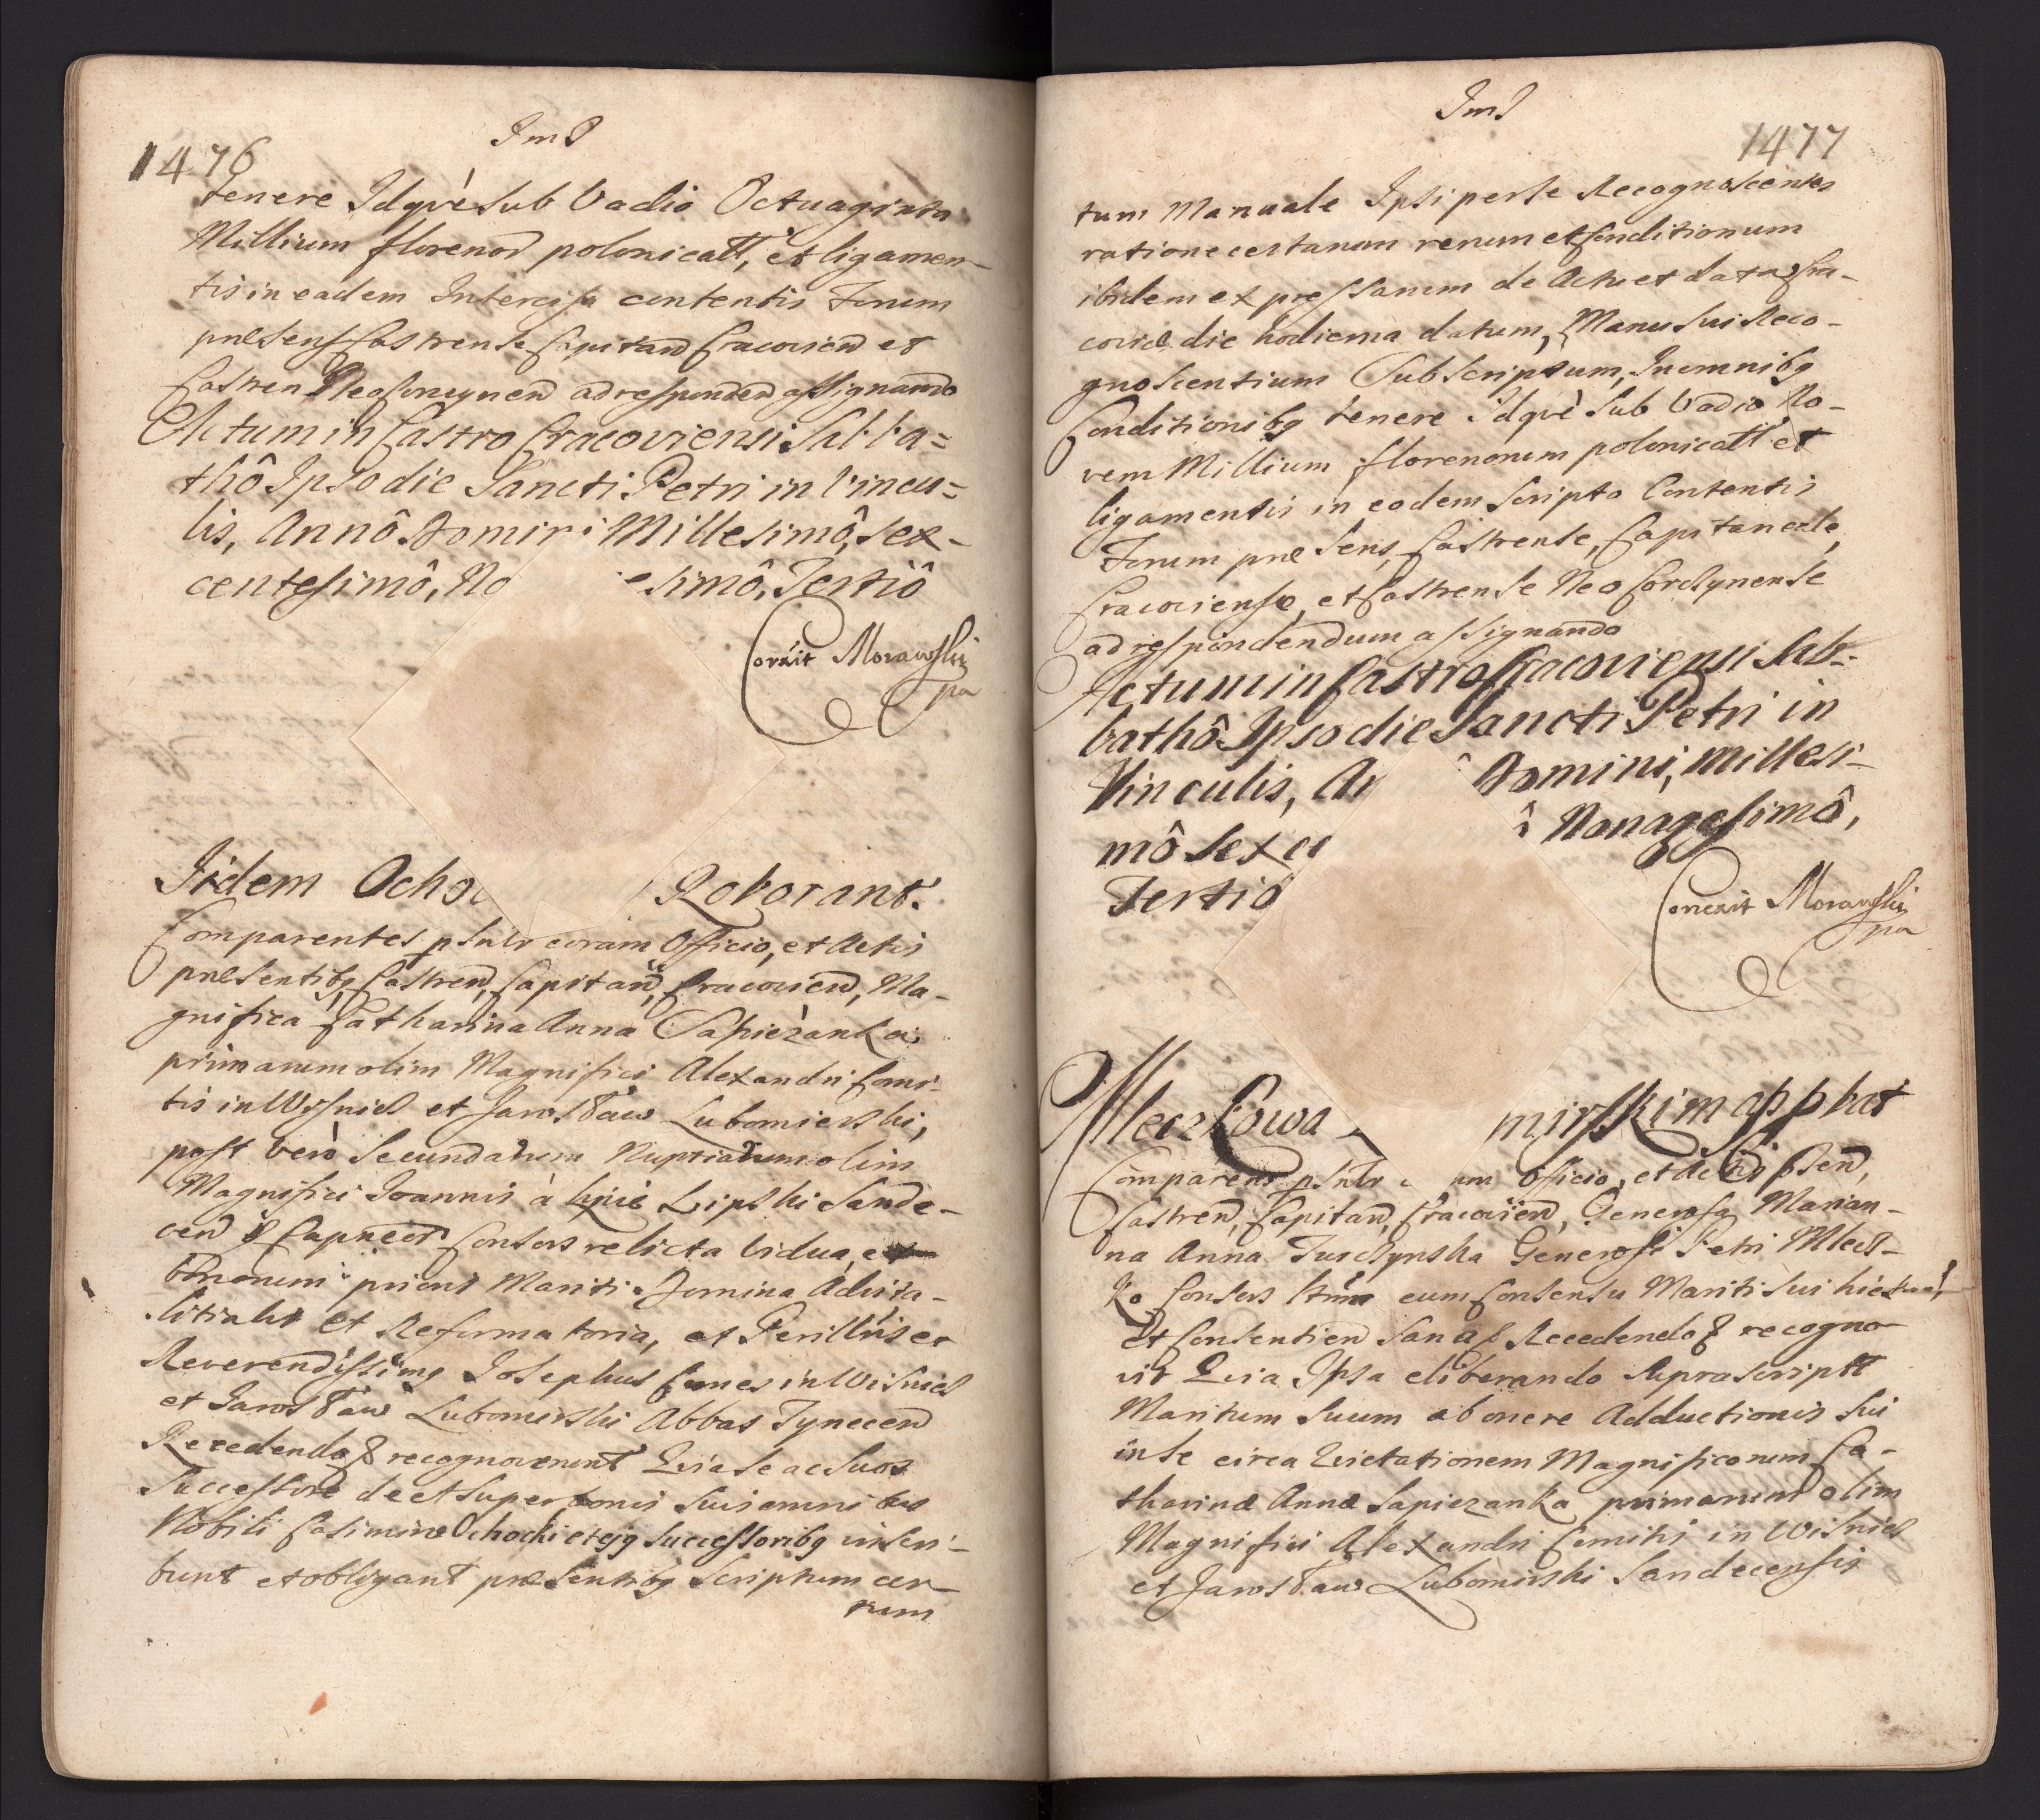 1476
tenere Idqvè sub Vadio Octuaginta
Millium florenor polonicall, et ligamen-
tis in eadem Intercisa contentis Forum
præsens Castrense Capitan Cracovien et
Castren adresponden assignando
Actum in Castro Cracoviensi Sabba=
thô Ipso die Sancti Petri in Vincu=
lis, Annô Domini Millesimô, sex-
centesimô, No esimô, Tertiô
Morawski
pa
Iidem Ocho Roborant.
Comparentes pslnlr coram Officio, et Actis
præsentibg Castren, Capitan, Cracovien, Ma-
gnifica Catharina Anna Sapiezanka
primarum olim Magnifici Alexandri Comi-
tis in Wisnicz et Jarosław Lubomierski,
post verò secundarum Nuptiarum olim
Magnifici Joannis à Lipie Lipski Sande-
cen Consors relicta Vidua,
bonorum prioris Mariti Domina Advita-
litialis et Reformatoria, et Perillris et
Reverendissimg Josephus Comes in Wisnicz
et Jarosław Lubomirski Abbas Tynecen
Recedendo & recognoverunt Qvia se ac suos
Successores de et super bonis suis omnibus
Nobili Casimiro Ochocki et ejg successoribg inscri-
bunt et obligant præsentibg Scriptum cer-
tum
1477
tum Manuale Ipsi per se Recognoscentes
ratione certarum rerum et Conditionum
ibidem expressarum de Actu et data Cra-
coviæ die hodierna datum, Manu sui Reco-
gnoscentium Subscriptum, In omnibg
Conditionibg tenere Idqvè sub Vadio No-
vem Millium florenorum polonicall et
ligamentis in eodem scripto Contentis
Forum præsens, Castrense, Capitaneale,
Cracoviense, et Castrense Neo Corczynense
ad respondendum assignando
Actum in Castro Cracoviensi Sab=
bathô Ipso die Sancti Petri in
Vinculis, An ô Domini, Millesi-
mô Sexce ô Nonagesimô,
Tertiô
Correxit Morawski
pa
Mleczkowa mirskim approbat
Comparens pslnlr um Officio, et Actis psen,
Castren, Capitan, Cracovien, Generosa Marian-
na Anna Turczynska Generosi Petri Mlecz-
ko Consors cum Consensu Mariti sui
et Consentien Sana & Recedendo & recogno-
vit Qvia Ipsa eliberando supra scriptt
Maritum suum ab onere Adductionis sui
in se circa Qvietationem Magnificorum Ca-
tharinæ Annæ Sapiezanka primarum olim
Magnifici Alexandri Comitis in Wisnicz
et Jarosław Lubomirski Sandecensis